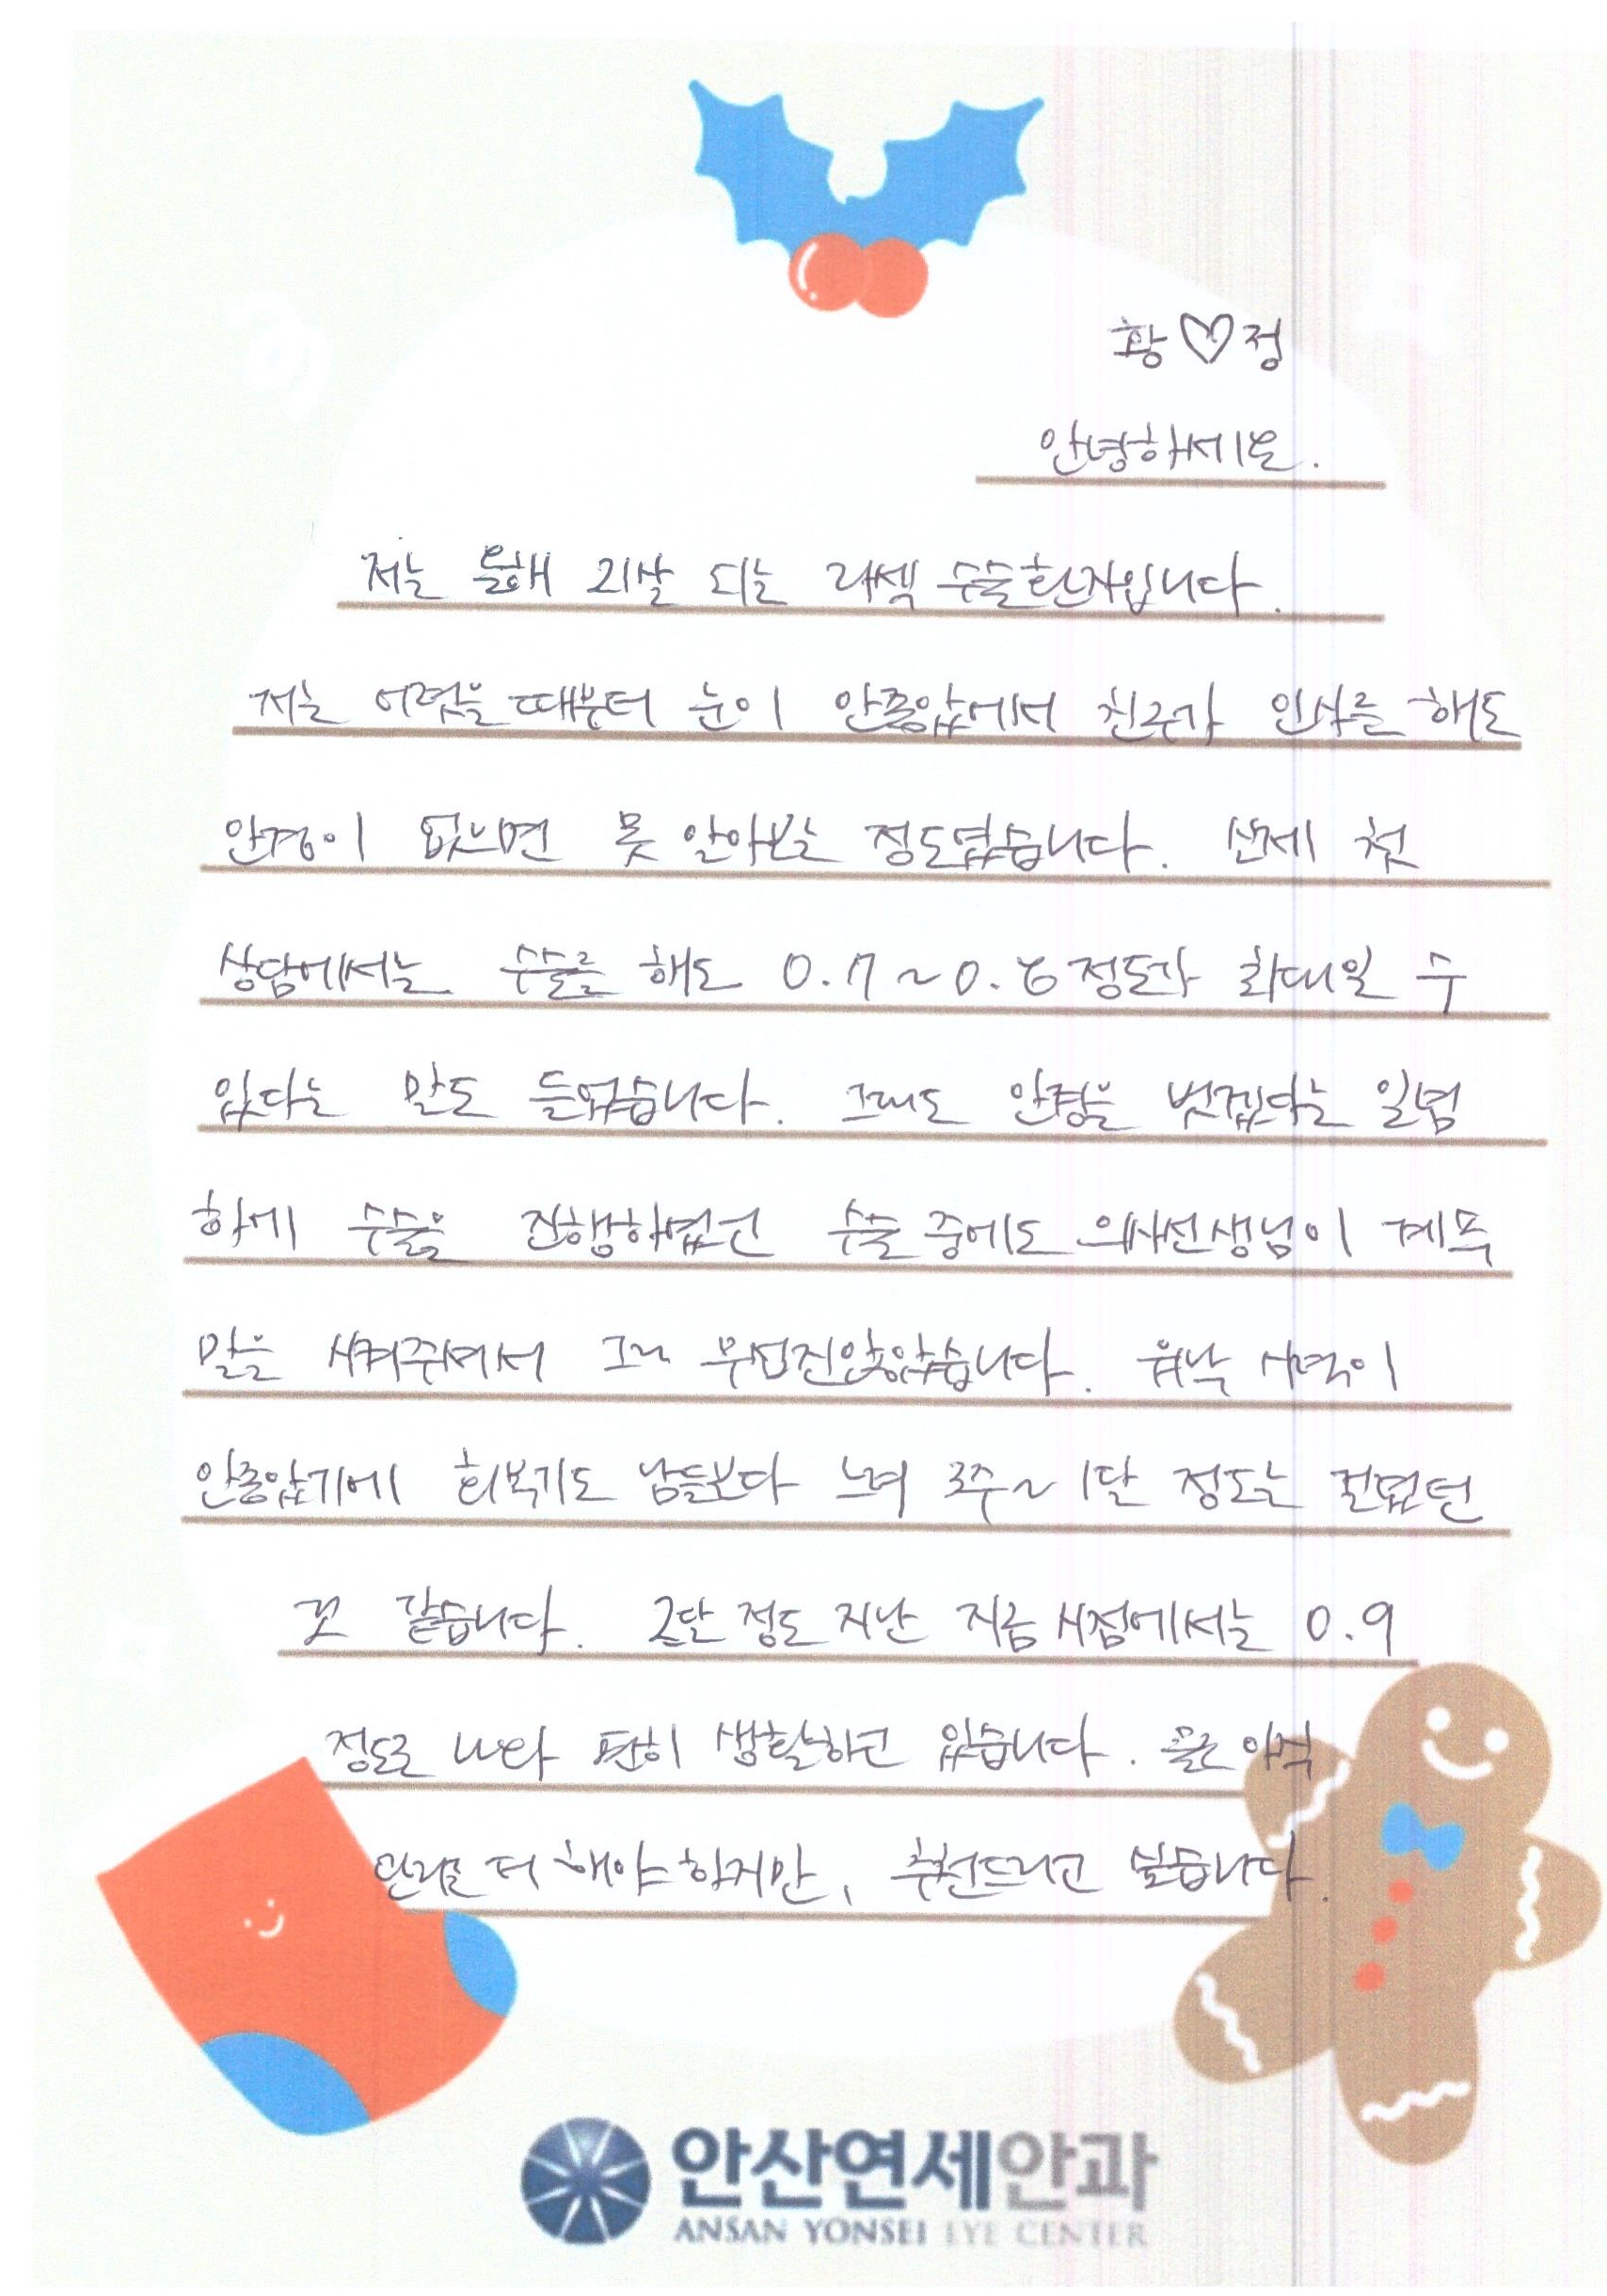 황♡정
안녕하세요.
저는 올해 21살 되는 라섹 수술환자입니다.
저는 어렸을 때부터 눈이 안좋았에서 친구가 인사를 해도
안경이 없으면 못 알아보는 정도였습니다. 실제 첫
상담에서는 수술을 해도 0.7~0.8정도가 최대일 수
있다는 말도 들었습니다. 그래도 안경을 벗겠다는 일념
하에 수술을 진행하였고 수술 중에도 의사선생님이 계속
말을 시켜주셔서 그리 무섭진않았습니다. 워낙 시력이
안좋았기에 회복기도 남들보다 느려 3주~1달 정도는 걸렸던
것 같습니다. 2달 정도 지난 지금 시점에서는 0.9
정도로 나와 편히 생활하고 있습니다. 물론 아직
관리를 더 해야 하지만, 추천드리고 싶습니다.
안산연세안과
ANSAN YONSEI EYE CENTER